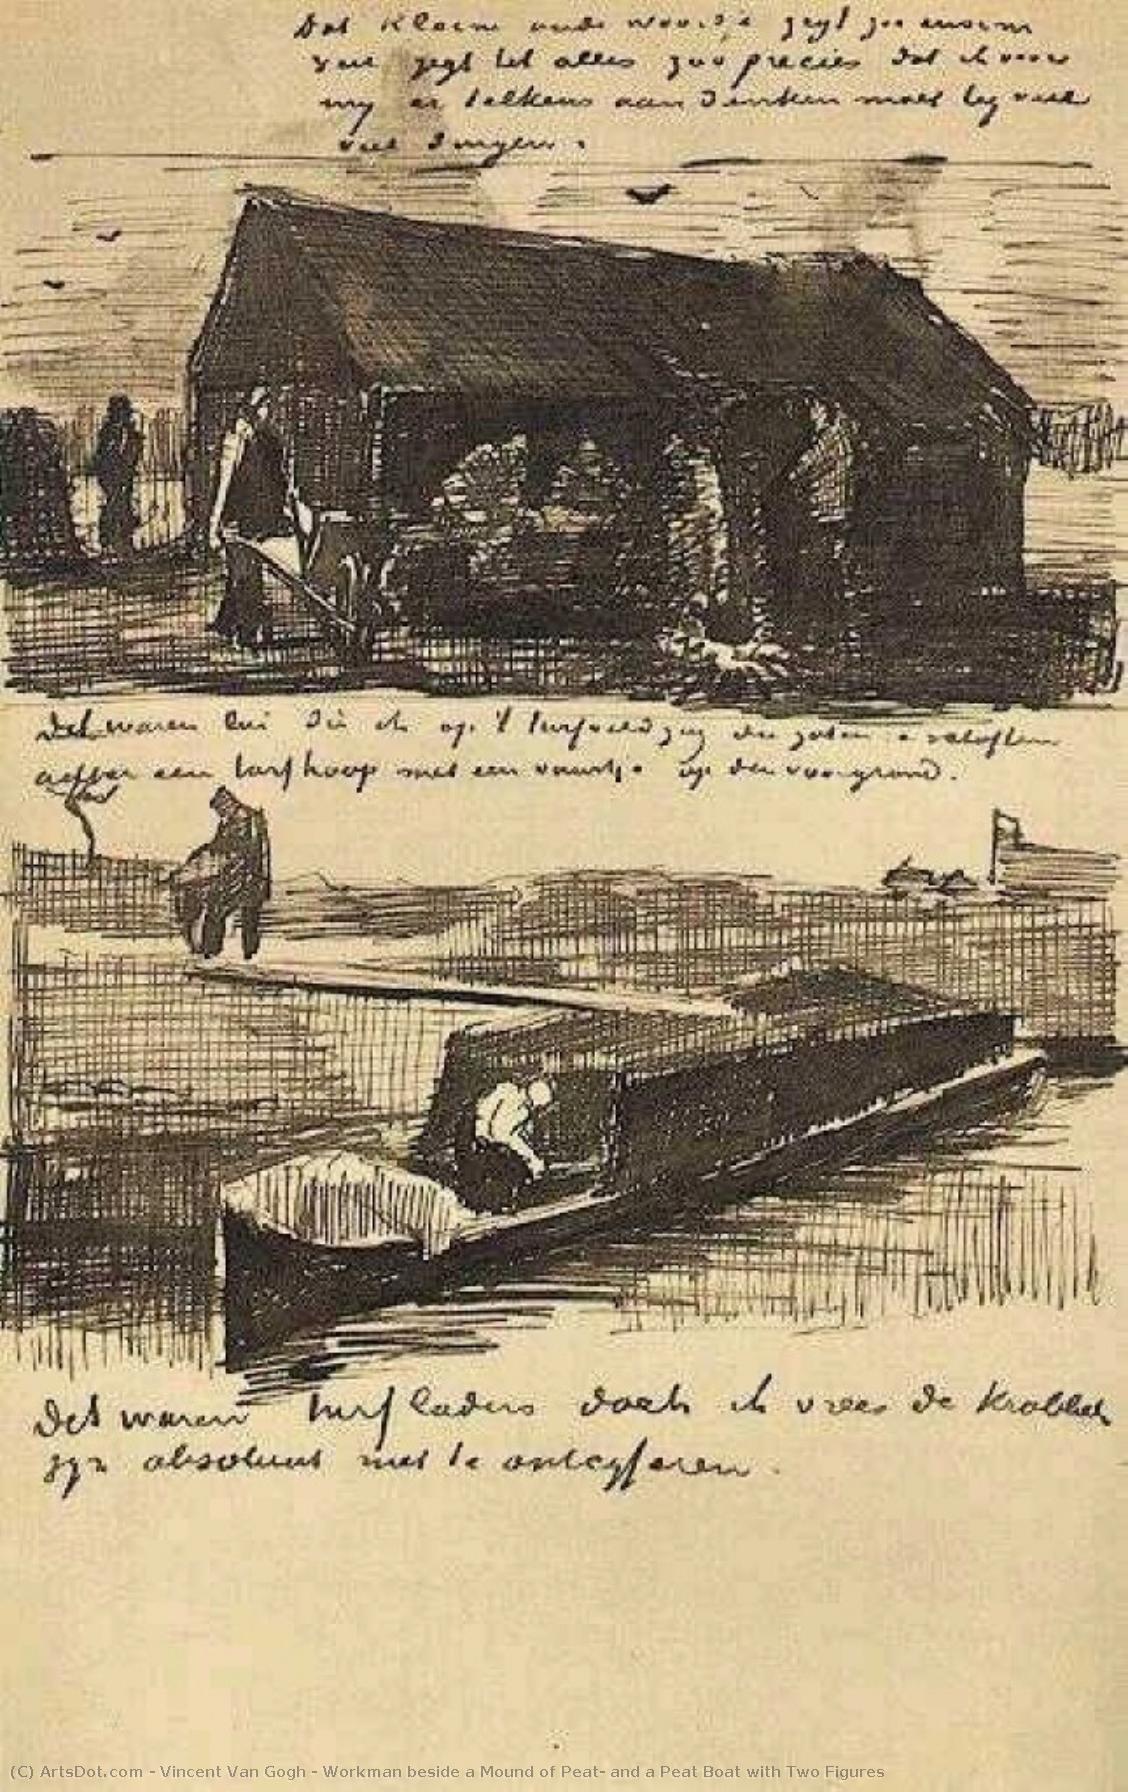 Dat kleine oude woordje zegt zoo enorm
veel zegt het alles zoo precies dat ik voor
my er telkens aan denken moet by veel
veel dingen.
Dat waren lui die ik op 't turfveld zag die zaten te schoften
achter een turfhoop met een vuurtje op den voorgrond.
Dat waren turfladers doch ik vrees de krabbels
zyn absoluut niet te ontcyferen.
(C) ArtsDot.com - Vincent Van Gogh - Workman beside a Mound of Peat- and a Peat Boat with Two Figures